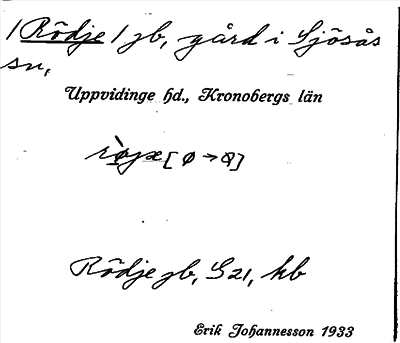 /Rödje/ gb, gård i Sjösås
sn,
Uppvidinge hd., Kronobergs län
Rödje gb, G21, hb
Erik Johannesson 1933